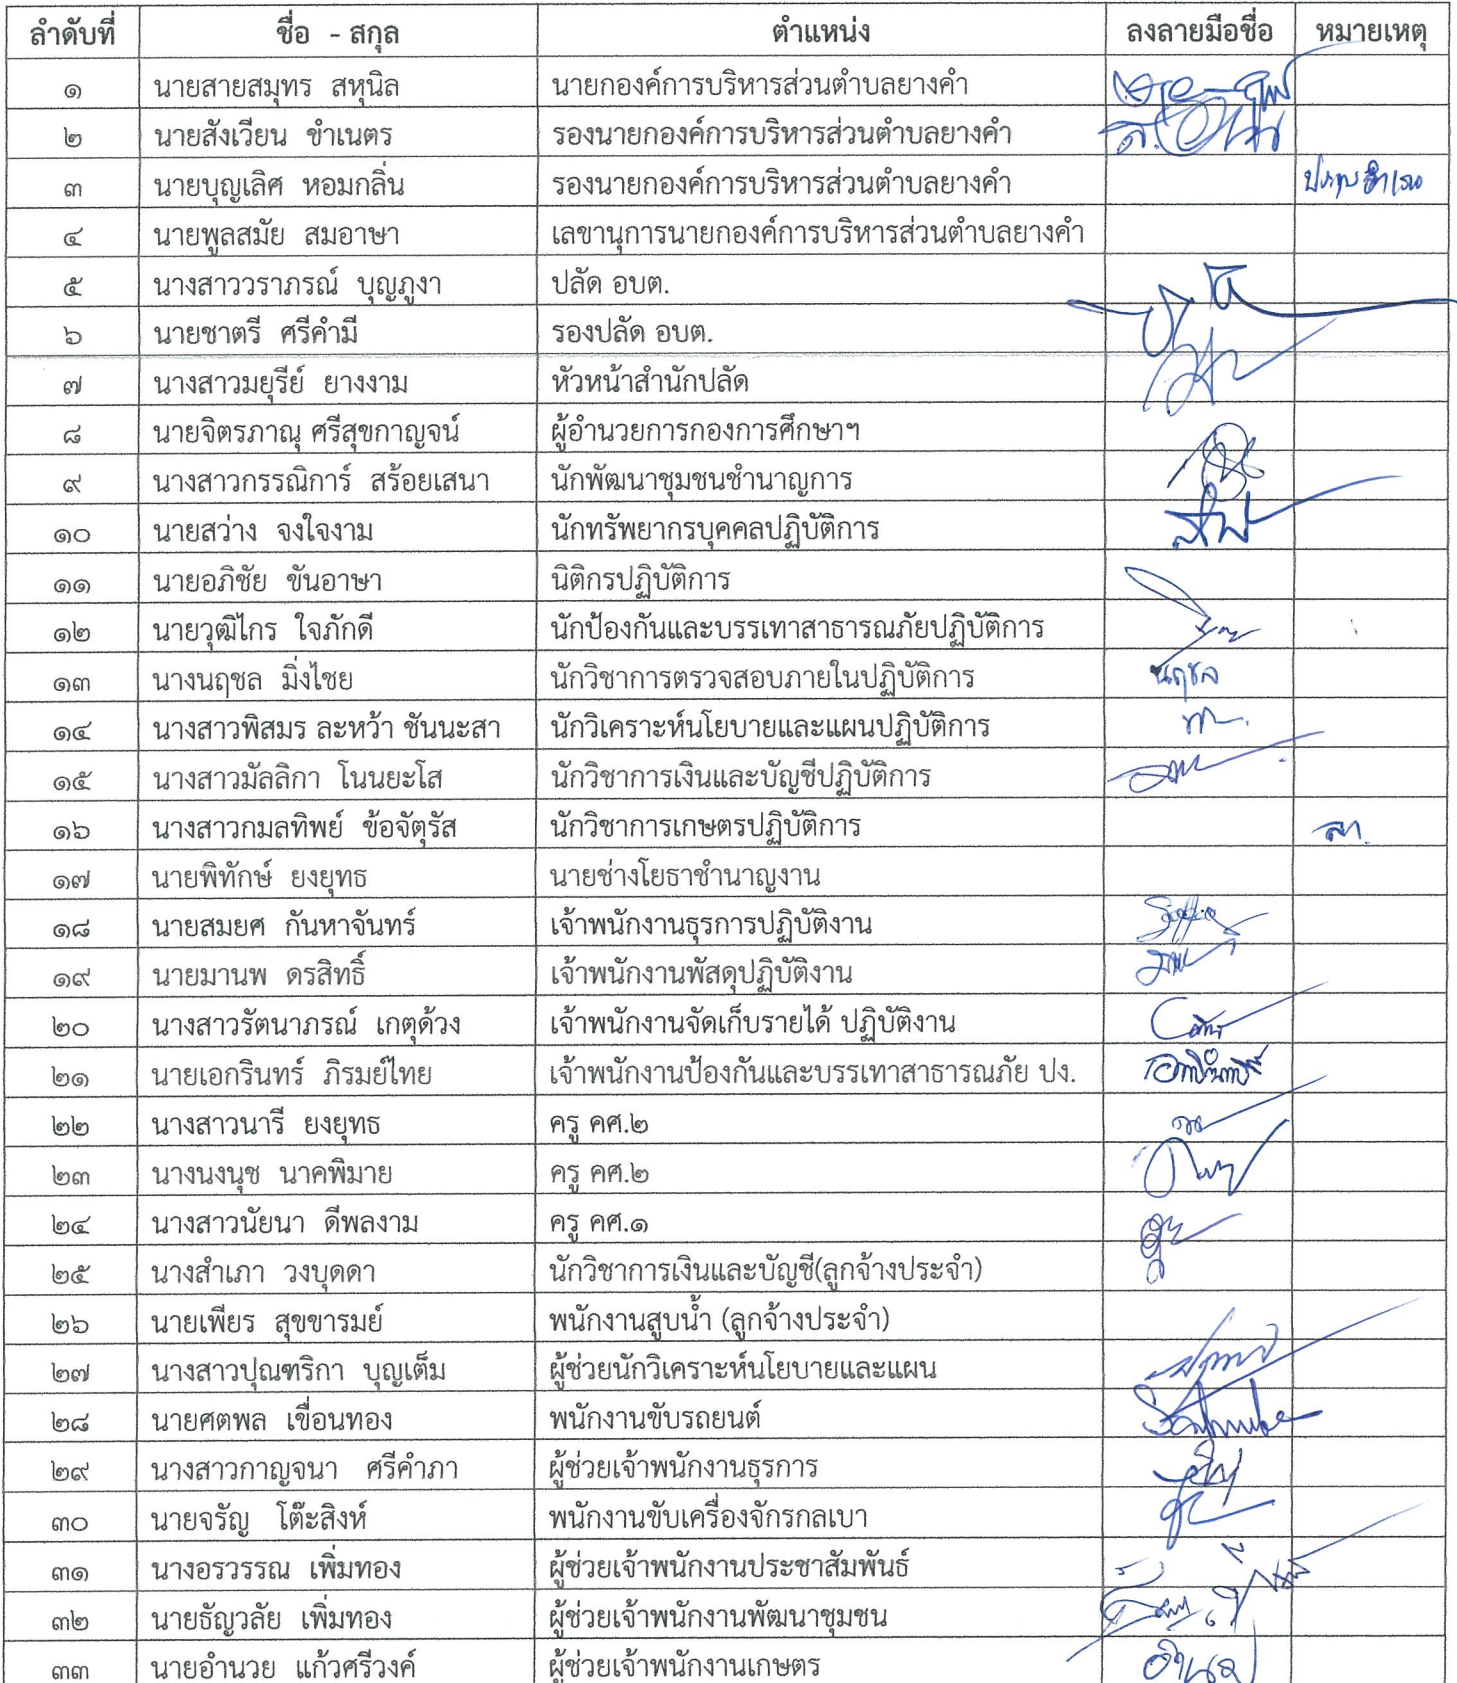 ลำดับที่ ชื่อ - สกุล ตำแหน่ง ลงลายมือชื่อ หมายเหตุ
๑ นายสายสมุทร สหุนิล นายกองค์การบริหารส่วนตำบลยางคำ
๒ นายสังเวียน ขำเนตร รองนายกองค์การบริหารส่วนตำบลยางคำ
๓ นายบุญเลิศ หอมกลิ่น รองนายกองค์การบริหารส่วนตำบลยางคำ
๔ นายพูลสมัย สมอาษา เลขานุการนายกองค์การบริหารส่วนตำบลยางคำ
๕ นางสาววราภรณ์ บุญภูงา ปลัด อบต.
๖ นายชาตรี ศรีคำมี รองปลัด อบต.
๗ นางสาวมยุรีย์ ยางงาม หัวหน้าสำนักปลัด
๘ นายจิตรภาณุ ศรีสุขกาญจน์ ผู้อำนวยการกองการศึกษาฯ
๙ นางสาวกรรณิการ์ สร้อยเสนา นักพัฒนาชุมชนชำนาญการ
๑๐ นายสว่าง จงใจงาม นักทรัพยากรบุคคลปฏิบัติการ
๑๑ นายอภิชัย ขันอาษา นิติกรปฏิบัติการ
๑๒ นายวุฒิไกร ใจภักดี นักป้องกันและบรรเทาสาธารณภัยปฏิบัติการ
๑๓ นางนฤชล มิ่งไชย นักวิชาการตรวจสอบภายในปฏิบัติการ นฤชล
๑๔ นางสาวพิสมร ละหว้า ชันนะสา นักวิเคราะห์นโยบายและแผนปฏิบัติการ
๑๕ นางสาวมัลลิกา โนนยะโส นักวิชาการเงินและบัญชีปฏิบัติการ
๑๖ นางสาวกมลทิพย์ ข้อจัตุรัส นักวิชาการเกษตรปฏิบัติการ ลา.
๑๗ นายพิทักษ์ ยงยุทธ นายช่างโยธาชำนาญงาน
๑๘ นายสมยศ กันหาจันทร์ เจ้าพนักงานธุรการปฏิบัติงาน
๑๙ นายมานพ ดรสิทธิ์ เจ้าพนักงานพัสดุปฏิบัติงาน
๒๐ นางสาวรัตนาภรณ์ เกตุด้วง เจ้าพนักงานจัดเก็บรายได้ ปฏิบัติงาน
๒๑ นายเอกรินทร์ ภิรมย์ไทย เจ้าพนักงานป้องกันและบรรเทาสาธารณภัย ปง.
๒๒ นางสาวนารี ยงยุทธ ครู คศ.๒
๒๓ นางนงนุช นาคพิมาย ครู คศ.๒
๒๔ นางสาวนัยนา ดีพลงาม ครู คศ.๑
๒๕ นางสำเภา วงบุดดา นักวิชาการเงินและบัญชี(ลูกจ้างประจำ)
๒๖ นายเพียร สุขขารมย์ พนักงานสูบน้ำ (ลูกจ้างประจำ)
๒๗ นางสาวปุณฑริกา บุญเต็ม ผู้ช่วยนักวิเคราะห์นโยบายและแผน
๒๘ นายศตพล เขื่อนทอง พนักงานขับรถยนต์
๒๙ นางสาวกาญจนา ศรีคำภา ผู้ช่วยเจ้าพนักงานธุรการ
๓๐ นายจรัญ โต๊ะสิงห์ พนักงานขับเครื่องจักรกลเบา
๓๑ นางอรวรรณ เพิ่มทอง ผู้ช่วยเจ้าพนักงานประชาสัมพันธ์
๓๒ นายธัญวลัย เพิ่มทอง ผู้ช่วยเจ้าพนักงานพัฒนาชุมชน
๓๓ นายอำนวย แก้วศรีวงค์ ผู้ช่วยเจ้าพนักงานเกษตร